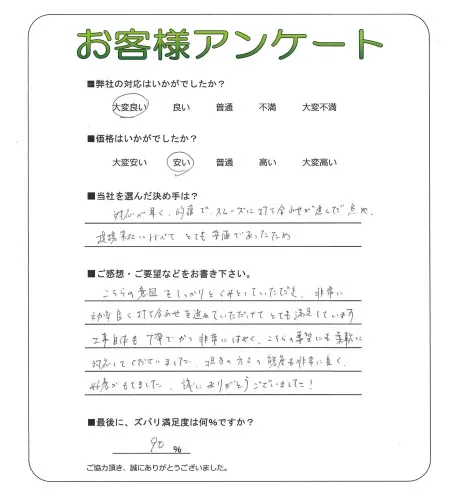 お客様アンケート
■弊社の対応はいかがでしたか？
大変良い 良い 普通 不満 大変不満
■価格はいかがでしたか？
大変安い 安い 普通 高い 大変高い
■当社を選んだ決め手は？
対応が早く、的確で、スムーズに打ち合わせが進んだ点や、
他社に比べて とても 安価であったため
■ご感想・ご要望などをお書き下さい。
こちらの意図をしっかりとくみとっていただき、非常に
効率良く打ち合わせを進めていただけて とても満足しています
工事自体も 丁寧でかつ非常にはやく、こちらの要望にも柔軟に
対応してくださいました。担当の方々の態度も非常に良く、
好感がもてました。誠にありがとうございました！
■最後に、ズバリ満足度は何%ですか？
90 %
ご協力頂き、誠にありがとうございました。